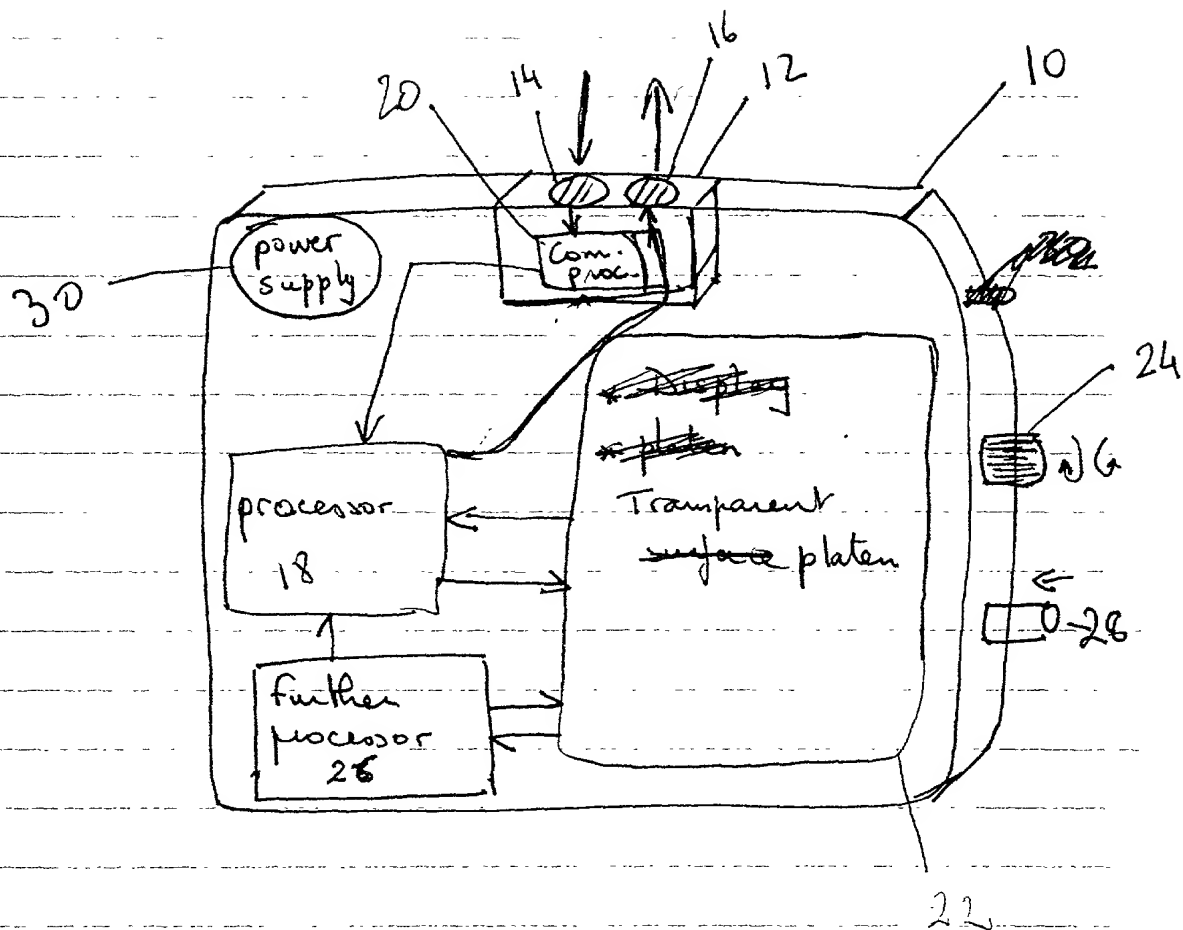 16
14
12
10
20
power
supply
Com.
proc.
30
24
Display
platen
Transparent
surface platen
processor
18
28
further
processor
26
22